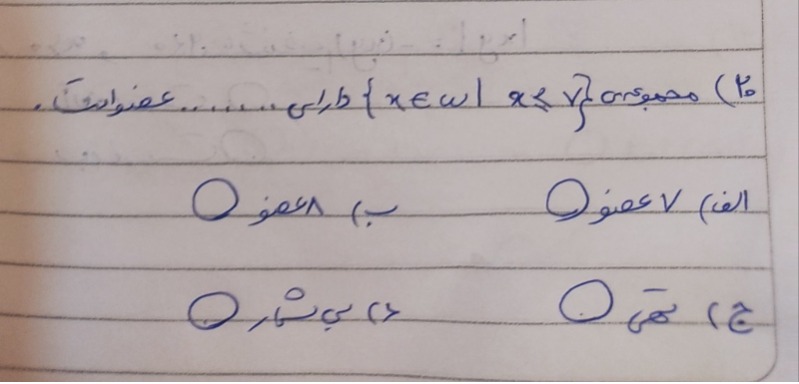 ۲۰) مجموعه‌ی {x ∈ w | x ≤ ۷} دارای ........ عضو است.
الف) ۷ عضو ○ ب) ۸ عضو ○
ج) تهی ○ د) بی شمار ○